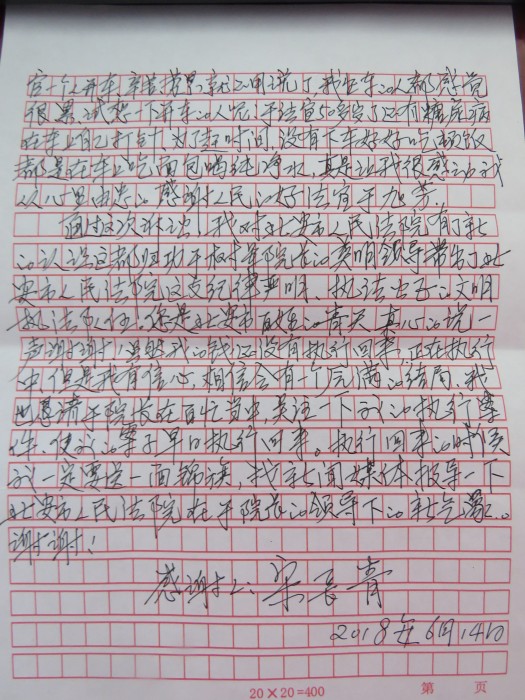 官一个人开车,辛苦劳累就不用说了,我坐车的人都感觉
很累,试想一下开车的人呢?于法官50多岁了还有糖尿病
在车上自己打针,为了赶时间,没有下车好好吃顿饭
都是在车上吃面包喝纯净水,真是让我很感动,我
从心里由衷的感谢人民的好法官于加芳。
通过这次执法,我对北安市人民法院有了新
的认识这都归功于权彦院长的英明领导带出了北
安市人民法院这支纪律严明、执法公正的文明
执法队伍,您是北安市百姓的青天真心的说一
声谢谢!虽然我的钱还没有执行回来,正在执行
中,但是我有信心,相信会有一个完满的结局,我
也恳请于院长在百忙当中关注一下我的执行案
件,使我的案子早日执行回来。执行回来的时候
我一定要送一面锦旗,找新闻媒体报导一下
北安市人民法院在于院长的领导下的新气象。
谢谢!
感谢人:宋长青
2018年6月14日
20×20=400 第 页